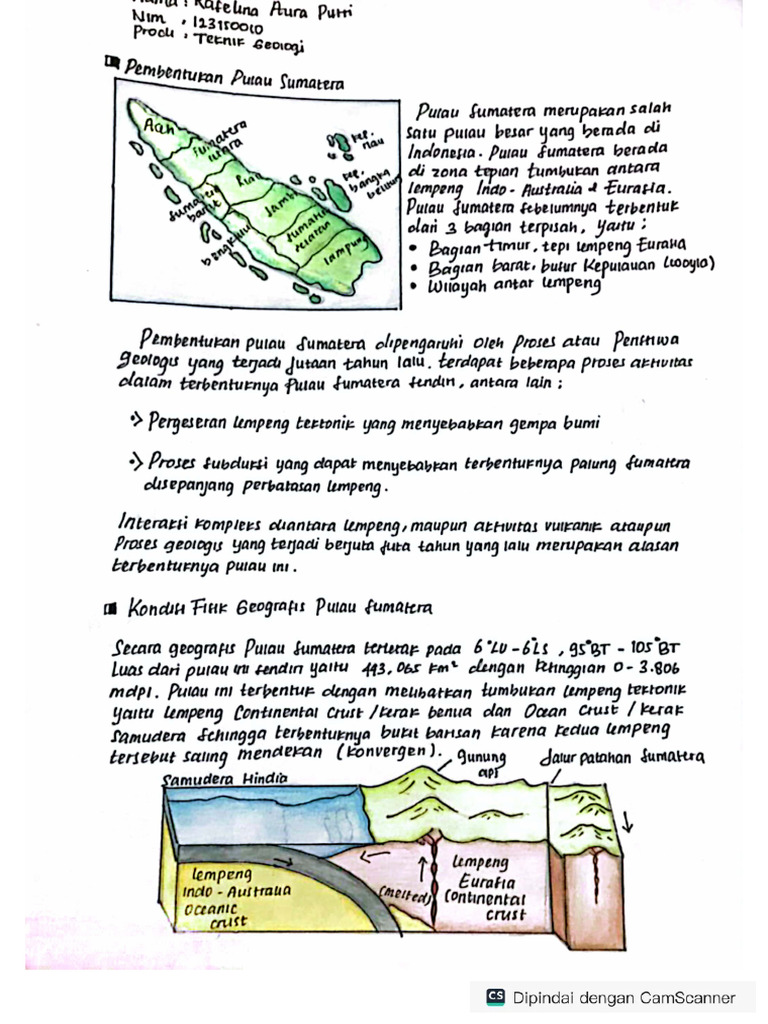 Nama : Rafelina Aura Putri
Nim : 123150010
Prodi : Teknik Geologi
Pembentukan Pulau Sumatera
Aceh
Sumatera utara
Riau
Jambi
Sumatera barat
Sumatera selatan
bengkulu
lampung
kep. riau
kep. bangka belitung
Pulau Sumatera merupakan salah
satu pulau besar yang berada di
Indonesia. Pulau Sumatera berada
di zona tepian tumbukan antara
lempeng Indo - Australia & Eurasia.
Pulau Sumatera sebelumnya terbentuk
dari 3 bagian terpisah, yaitu :
• Bagian timur, tepi lempeng Eurasia
• Bagian barat, busur Kepulauan (woyla)
• Wilayah antar lempeng
Pembentukan pulau Sumatera dipengaruhi oleh Proses atau Peristiwa
geologis yang terjadi jutaan tahun lalu. terdapat beberapa proses aktivitas
dalam terbentuknya Pulau Sumatera sendiri, antara lain :
Pergeseran lempeng tektonik yang menyebabkan gempa bumi
Proses Subduksi yang dapat menyebabkan terbentuknya palung Sumatera
disepanjang perbatasan lempeng.
Interaksi kompleks diantara lempeng, maupun aktivitas vulkanik ataupun
Proses geologis yang terjadi berjuta juta tahun yang lalu merupakan alasan
terbentuknya pulau ini.
Kondisi Fisik Geografis Pulau Sumatera
Secara geografis Pulau Sumatera terletak pada 6°LU - 6°LS , 95°BT - 105°BT
Luas dari pulau ini sendiri yaitu 443.065 km² dengan ketinggian 0 - 3.806
mdpl. Pulau ini terbentuk dengan melibatkan tumbukan lempeng tektonik
yaitu lempeng Continental Crust / kerak benua dan Ocean Crust / kerak
Samudera Sehingga terbentuknya bukit barisan karena kedua lempeng
tersebut saling mendekan (konvergen).
gunung api
Jalur patahan Sumatera
Samudera Hindia
lempeng
Indo - Australia
Oceanic
crust
(melted)
lempeng
Eurasia
Continental
crust
CS Dipindai dengan CamScanner